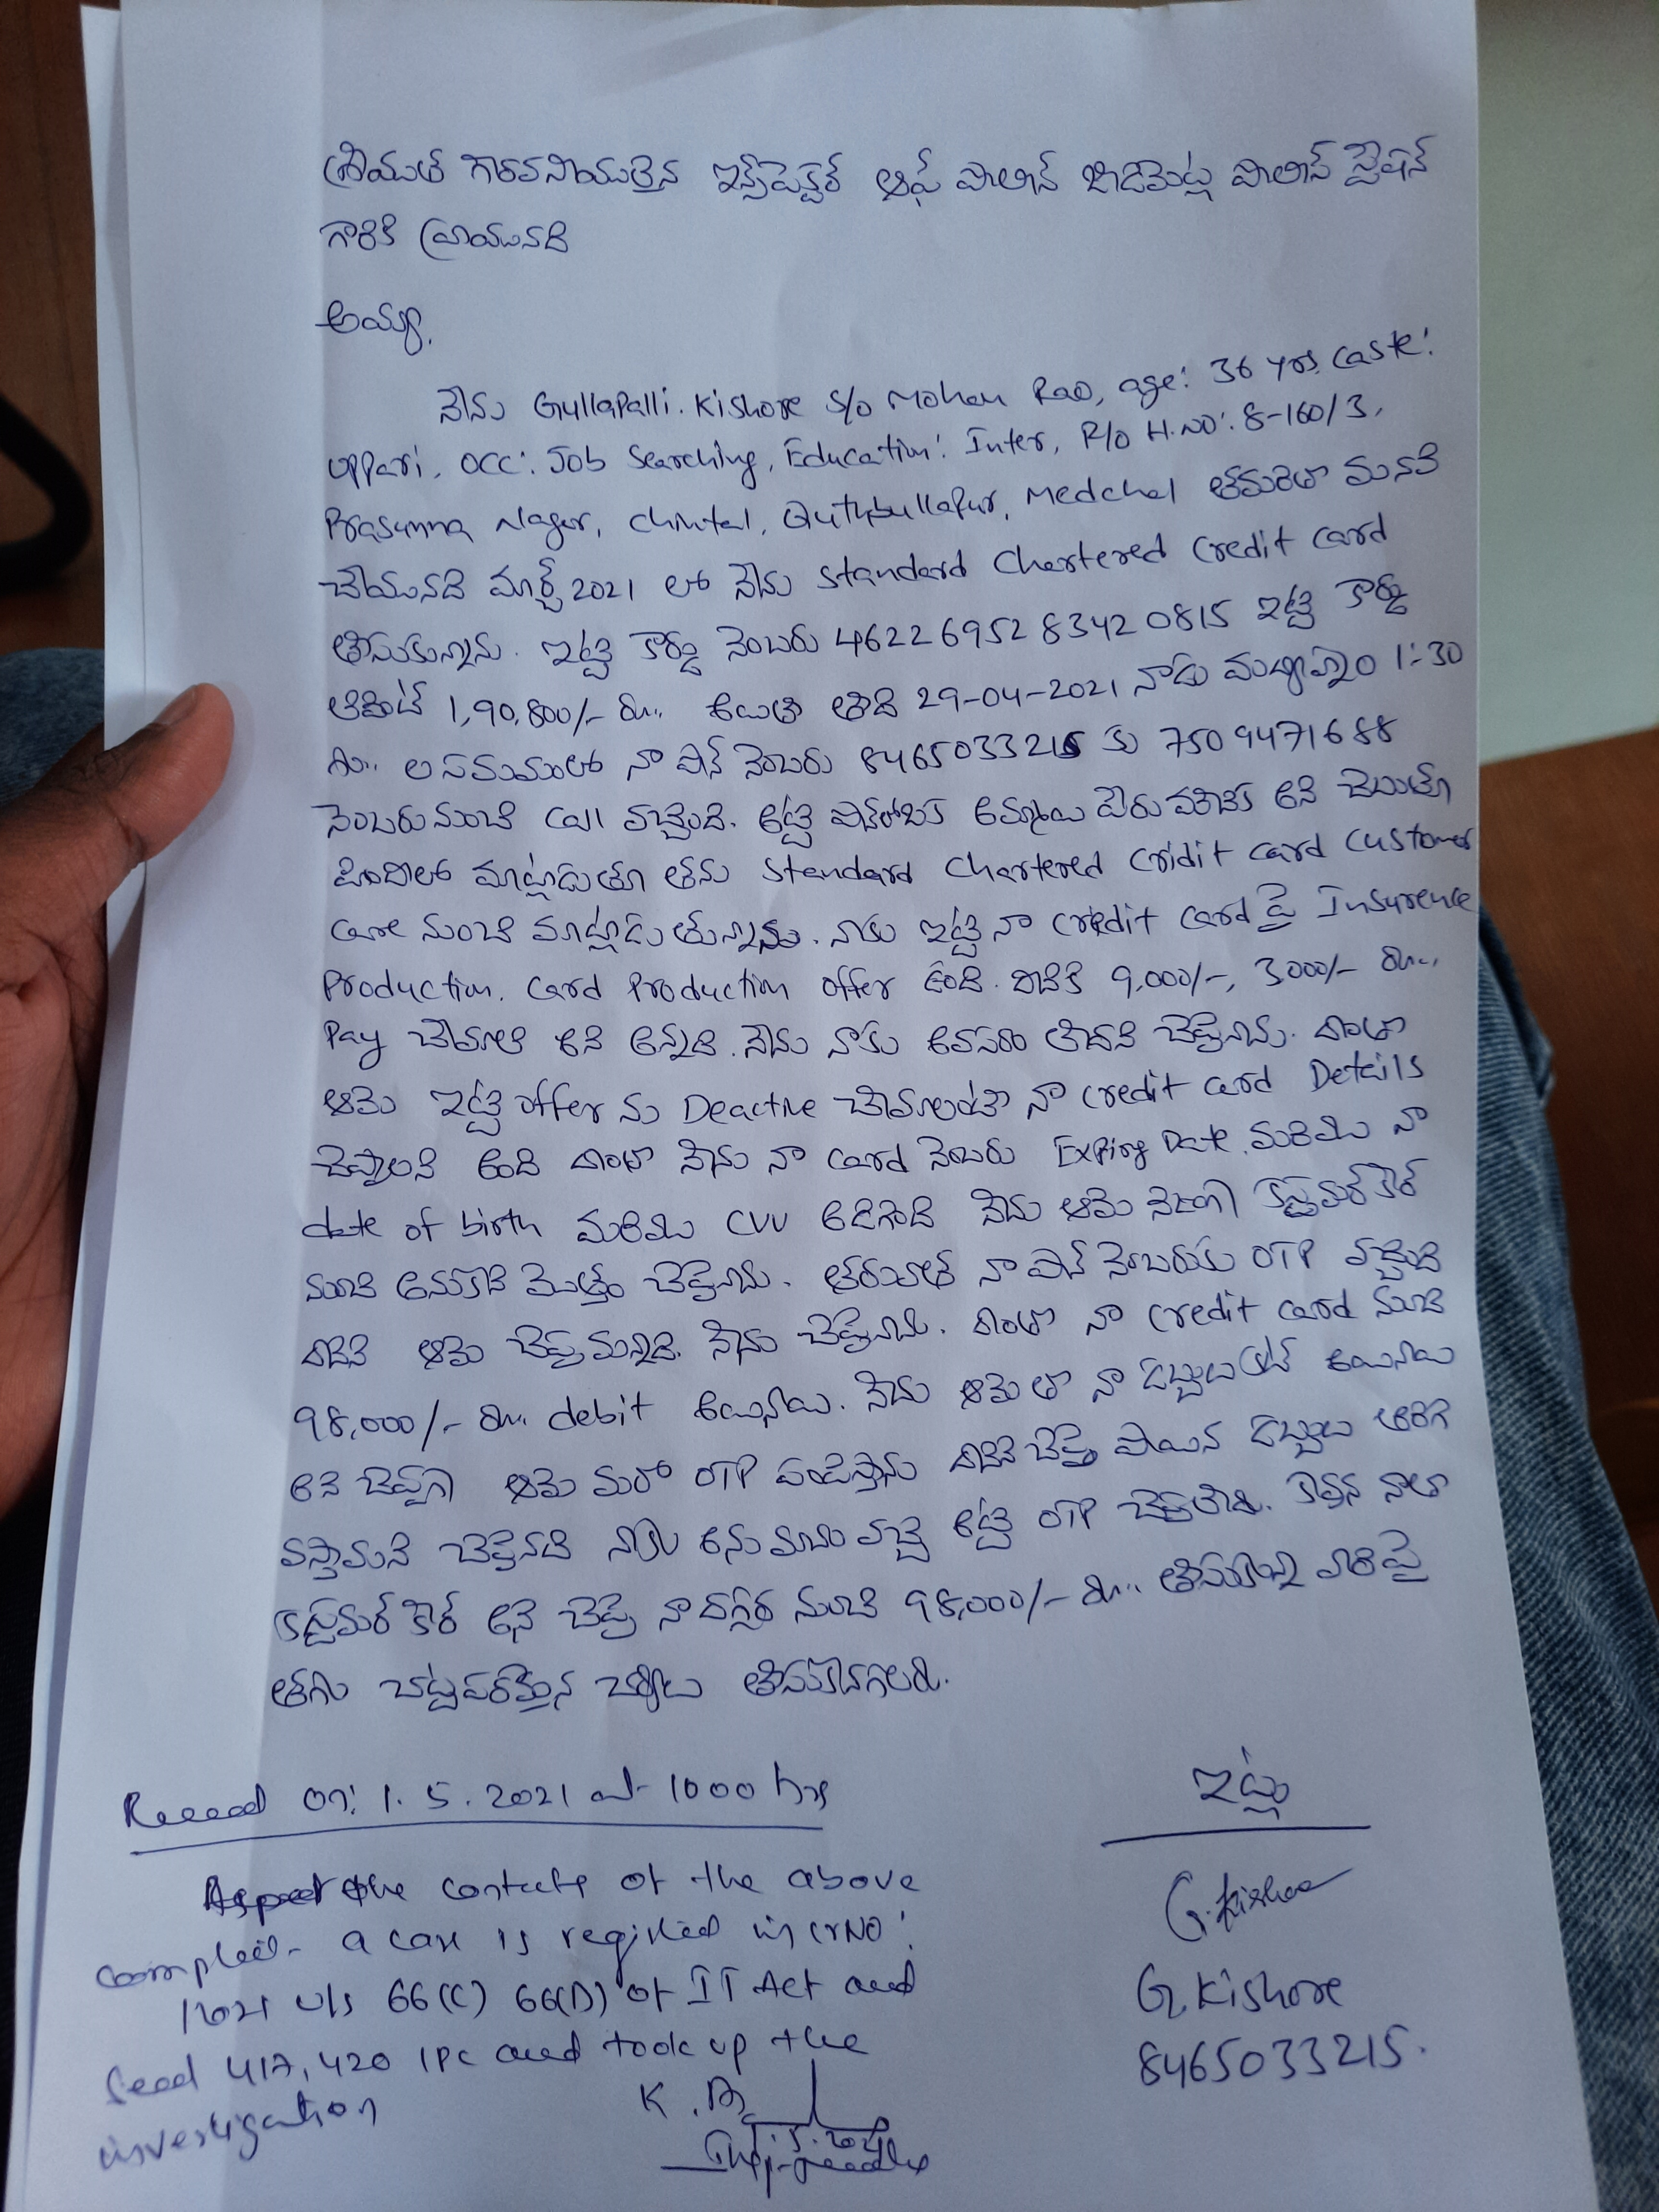 శ్రీయుత గౌరవనీయులైన ఇన్స్పెక్టర్ ఆఫ్ పోలీస్ జీడిమెట్ల పోలీస్ స్టేషన్
గారికి వ్రాయునది
అయ్యా,
నేను Gullapalli. Kishore S/o Mohan Rao, age: 36 yrs, caste:
uppari, occ: Job Searching, Education: Inter, R/o H.NO: 8-160/3,
Prasunna Nagar, Chintal, Quthbullapur, Medchal తమరితో మనవి
చేయునది మార్చ్ 2021 లో నేను Standard Chartered Credit Card
తీసుకున్నాను. ఇట్టి కార్డు నెంబరు 4622695283420815 ఇట్టి కార్డు
1,90,800/- రూ.. అయితే తేది 29-04-2021 నాడు మధ్యాహ్నం 1:30
గం.. ల సమయంలో నా ఫోన్ నెంబరు 8465033215 కు 7509471688
నెంబరు నుంచి call వచ్చింది. అట్టి అమ్మాయి పేరు అని చెబుతూ
హిందీలో మాట్లాడుతూ తను Standard Chartered Cridit card customer
care నుంచి మాట్లాడుతున్నాను. నాకు ఇట్టి నా credit card పై Insurence
Production. Card Production offer ఉంది. దీనికి 9,000/-, 3,000/- రూ..
Pay చేయాలి అని అన్నది. నేను నాకు అవసరం లేదని చెప్పినాను. దాంతో
ఆమె ఇట్టి offer ను Deactive చేయాలంటే నా credit card Details
చెప్పాలని అంది దాంతో నేను నా card నెంబరు Expiring Date, మరియు నా
date of birth మరియు CVV అడిగింది నేను ఆమె నిజంగా కస్టమర్ కేర్
నుంచి అనుకొని మొత్తం చెప్పినాను. తరువాత నా ఫోన్ నెంబరుకు OTP వచ్చింది
దానిని ఆమె చెప్పమన్నది. నేను చెప్పినాను. దాంతో నా credit card నుంచి
98,000/- రూ.. debit అయినాయి. నేను ఆమెతో నా డబ్బులు కట్ అయినాయి
అని చెప్పగా ఆమె మరో OTP పంపిస్తాను దానిని చెప్తే పోయిన డబ్బులు తిరిగి
వస్తాయని చెప్పినది నాకు అనుమానం వచ్చి అట్టి OTP చెప్పలేదు. కావున నాతో
కస్టమర్ కేర్ అని చెప్పి నా దగ్గర నుంచి 98,000/- రూ.. తీసుకున్న వారిపై
తగు చట్టపరమైన చర్యలు తీసుకోగలరు.
ఇట్లు
G. Kishore
G. Kishore
8465033215.
Received on: 1.5.2021 at 1000 hrs
the contents of the above
complaint a case is registered in Cr NO:
/2021 u/s 66(C) 66(D) of IT Act and
Secd 417, 420 IPC and took up the
investigation